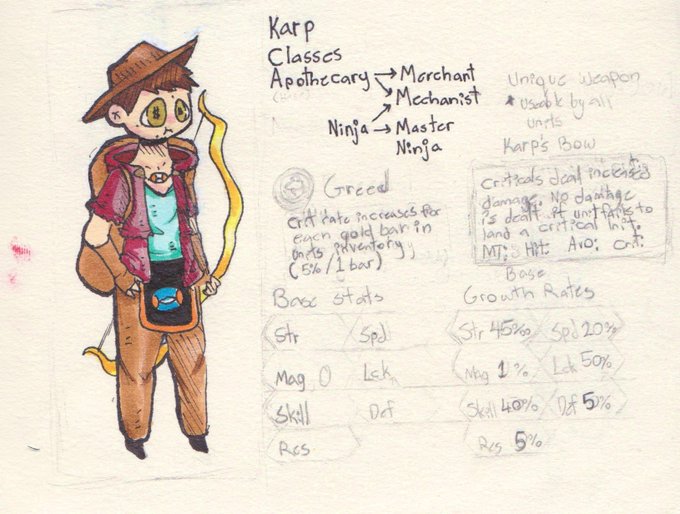 Karp
Classes
Apothecary → Merchant
→ Mechanist
Ninja → Master
Ninja
Unique Weapon
* Useable by all
units
Karp's Bow
Criticals deal increased
damage. No damage
is dealt if unit fails to
land a critical hit.
MT: Hit: Avo: Crit:
Greed
Crit rate increases for
each gold bar in
units inventory
(5%/1 bar)
Base Stats
Str Spd
Mag 0 Lck
Skill Def
Res
Base
Growth Rates
Str 45% Spd 20%
Mag 1% Lck 50%
Skill 40% Def 5%
Res 5%